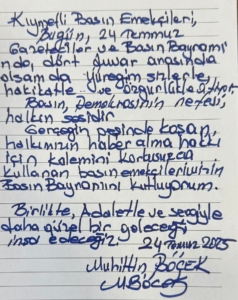 Kıymetli Basın Emekçileri,
Bugün, 24 Temmuz
Gazeteciler ve Basın Bayramı
nda, dört duvar arasında
olsamda yüreğim sizlerle,
hakikatle ve özgürlükle
Basın, Demokrasinin nefesi,
halkın sesidir
Gerçeğin peşinde koşan,
halkımızın haber alma hakkı
için kalemini korkusuzca
kullanan basın emekçilerimizin
Basın Bayramını kutluyorum.
Birlikte, Adaletle ve sevgiyle
daha güzel bir geleceği
inşa edeceğiz
24 Temmuz 2025
Muhittin BÖCEK
MBöcek